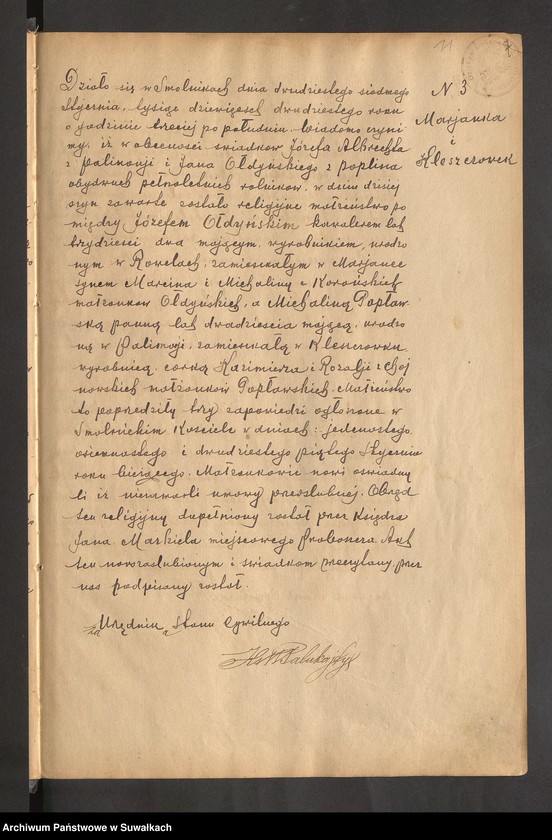 11
N 3
Marjanka
i
Kleszczorek
Działo się w Smolnikach dnia dwudziestego siodmego
Stycznia, tysiąc dziewięset dwudziestego roku
o godzinie trzeciej po południu. Wiadomo czyni
my, iż w obecności swiadków Józefa Albrechta
z Palinoнji i Jana Ołdyńskiego z Poplina
obydwuch pełnoletnich rolników, w dniu dzisiej
szym zawarte zostało religijne małżeństwo po
między Józefem Ołdyńskim kawalerem lat
trzydzieści dwa mającym, wyrobnikiem, urodzo
nym w Rowelach, zamieszkałym w Marjance
synem Marcina i Michaliny z Korońskich
małżonków Ołdyńskich, a Michaliną Popław-
ską panną lat dwadzieścia mającą, urodzo
ną w, zamieszkałą w Kleszczorku
wyrobnicą, corką Kazimierza i Rozalji z Choj
nowskich małżonków Popławskich. Małżeństwo
to poprzedziły trzy zapowiedzi ogłoszone w
Smolnickim Kosciele w dniach: jedenastego,
osiemnastego i dwudziestego piątego Stycznia
roku bieżącego. Małżonkowie nowi oswiadczy
li iż niezawarli umowy przedslubnej. Obrzęd
ten religijny dopełniony został przez Księdza
Jana miejscowego Proboszcza. Akt
ten nowozaslubionym i swiadkom przeczytany, przez
nas podpisany został.
za Urzędnika Stanu Cywilnego
Archiwum Państwowe w Suwałkach